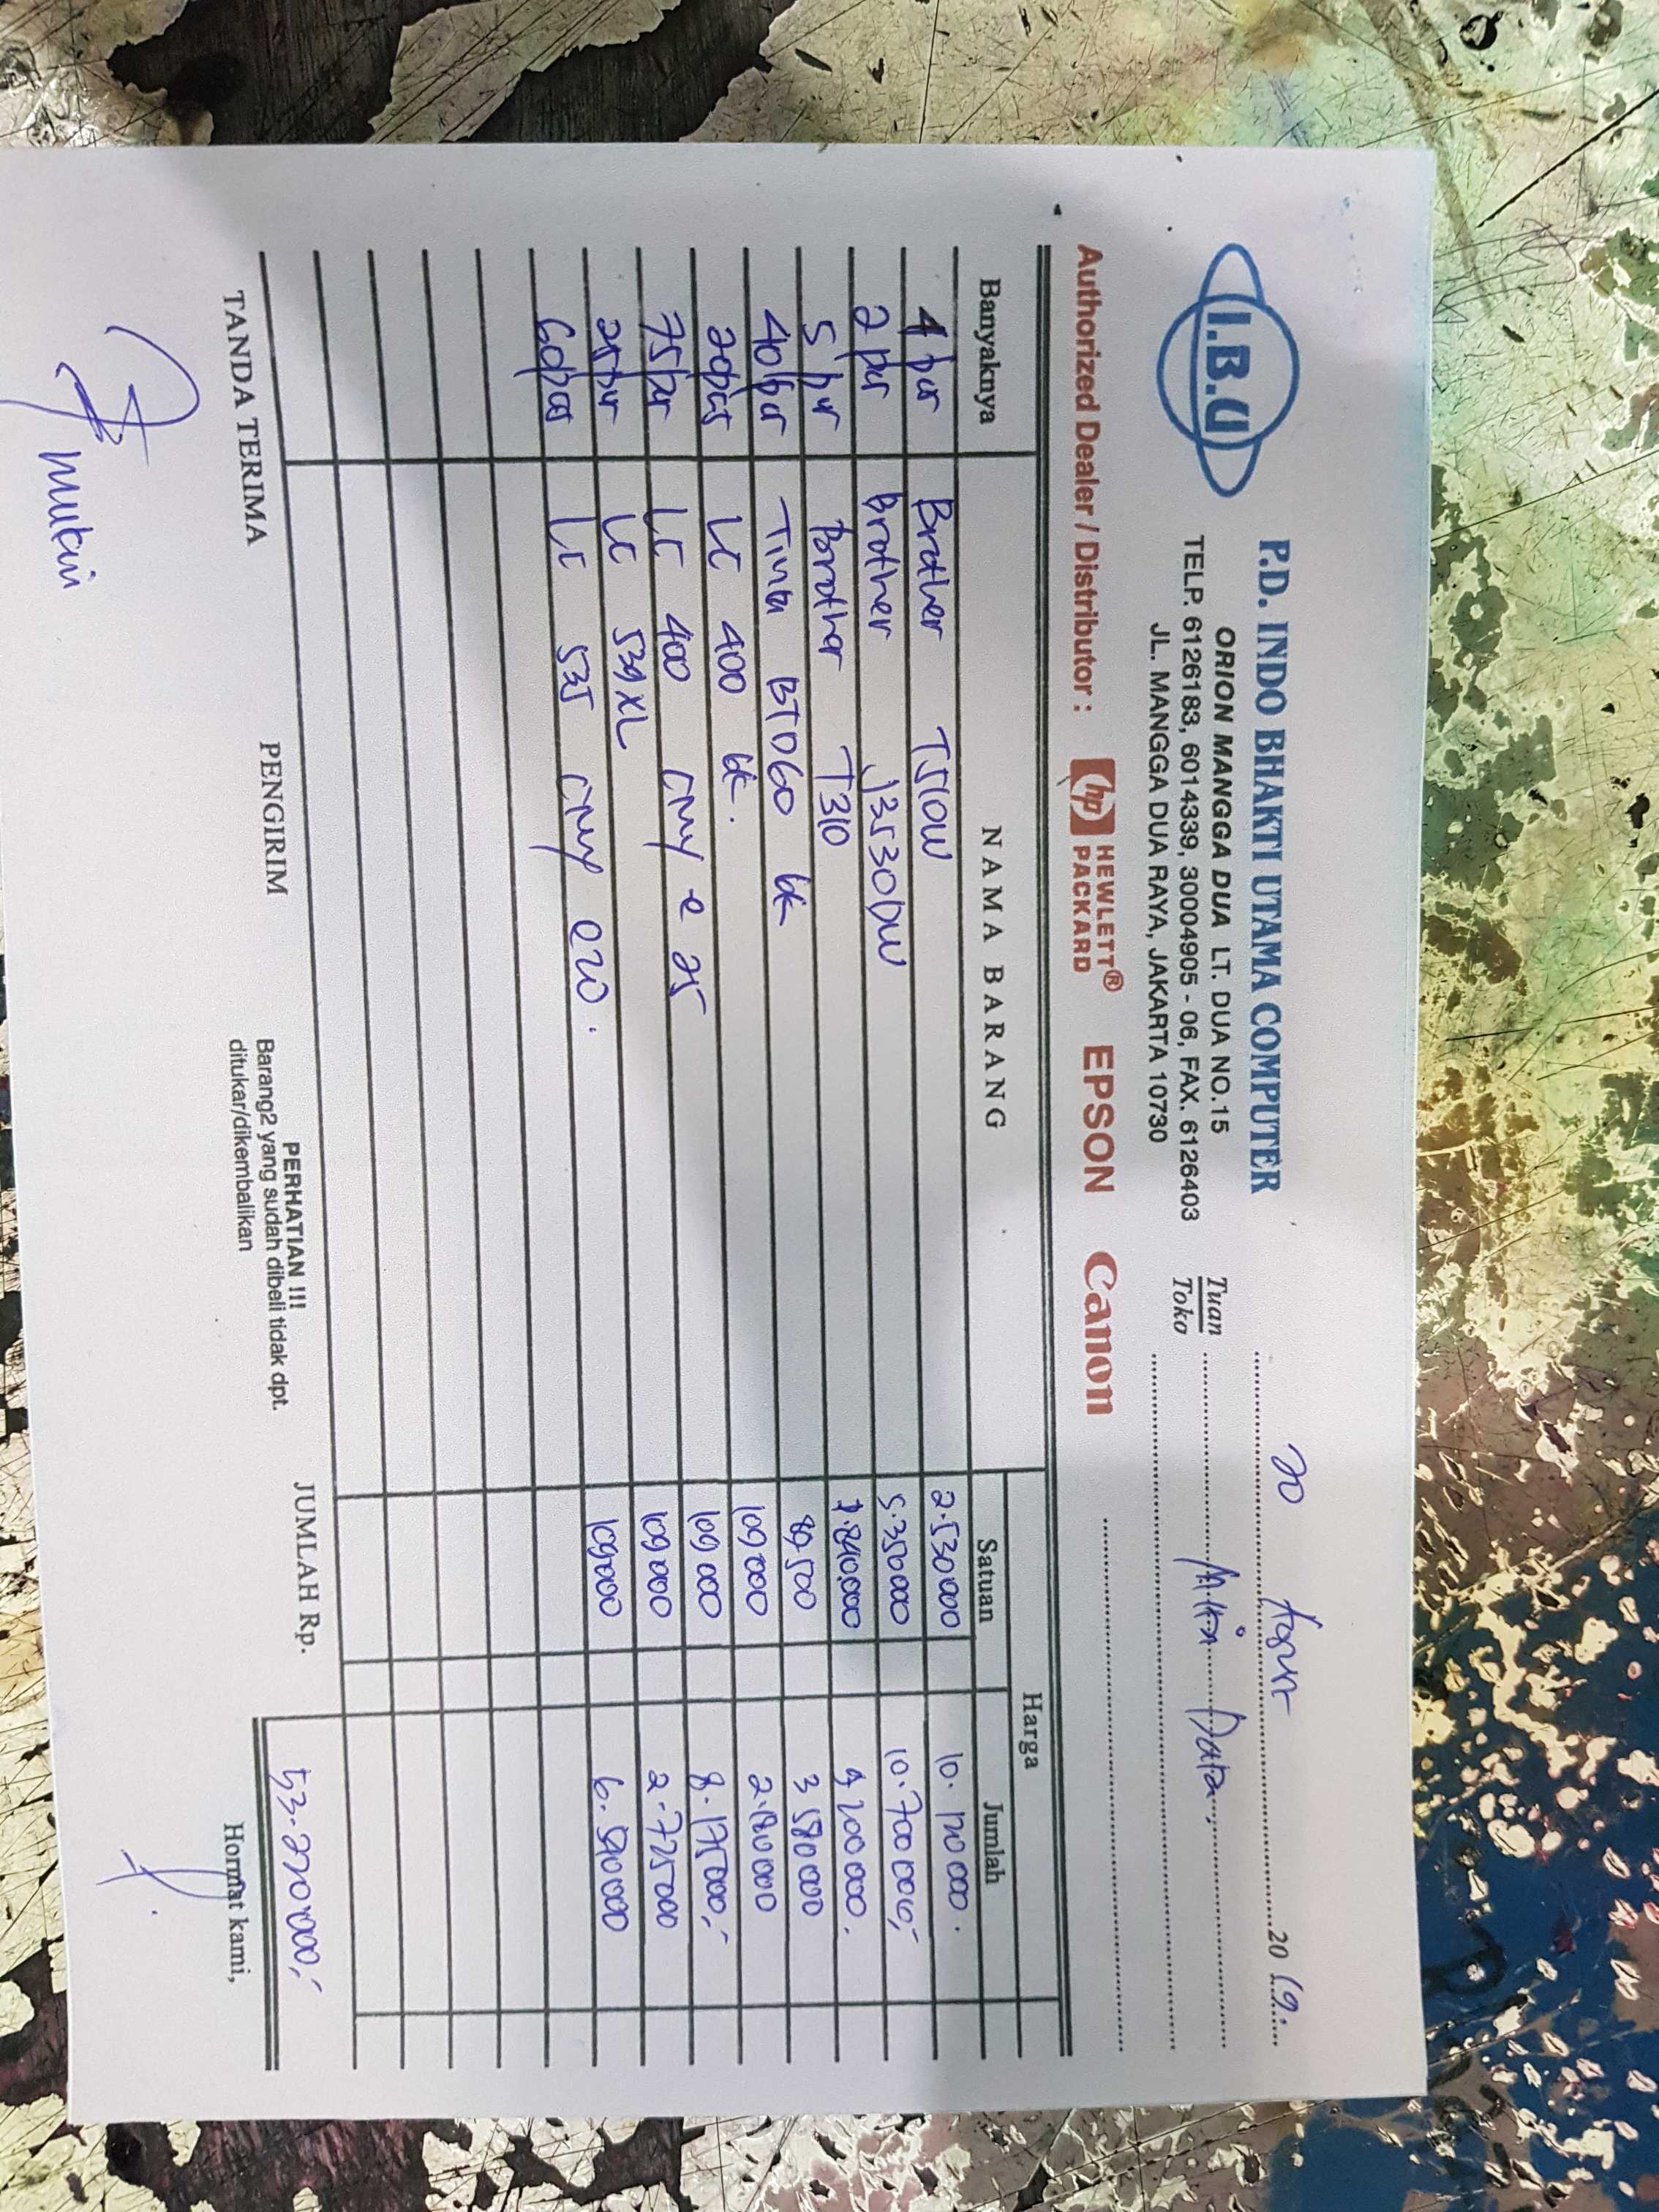 I.B.U
P.D. INDO BHAKTI UTAMA COMPUTER
ORION MANGGA DUA LT. DUA NO.15
TELP. 6126183, 6014339, 30004905 - 06, FAX. 6126403
JL. MANGGA DUA RAYA, JAKARTA 10730
20 20 19
Tuan
Toko
Data
Authorized Dealer / Distributor : hp HEWLETT® PACKARD EPSON Canon
Banyaknya NAMA BARANG Harga
Satuan Jumlah
4 pcs Brother T510W 2.530000 10.120000.
2 pcs Brother J3530DW 5.350000 10.700000,-
5 pcs Brother T310 1.840.000 9.200000.
40 pcs Tinta BTD60 bk 89.500 3580000
20 pcs LC 400 bk. 109.000 2.180000
75 pcs LC 400 cmy @ 25 109.000 8.175000,-
25 pcs LC 539XL 109.000 2.725000
60 pcs LC 535 cmy @20. 109000 6.540000
TANDA TERIMA PENGIRIM
PERHATIAN !!!
Barang2 yang sudah dibeli tidak dpt.
ditukar/dikembalikan
JUMLAH Rp. 53.220.000,-
Hormat kami,